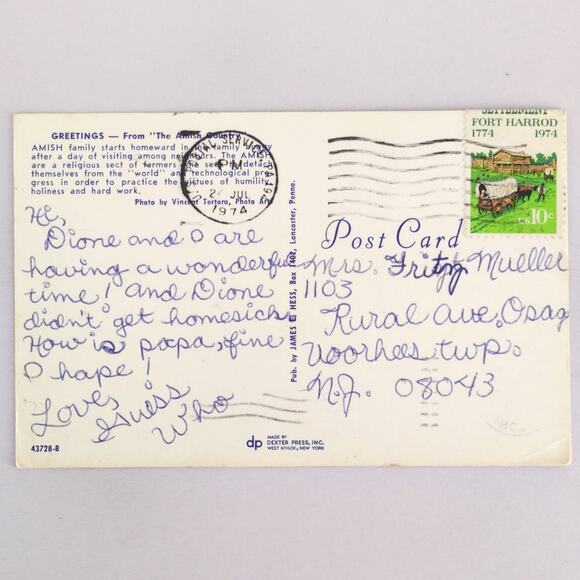 GREETINGS — From "The Amish Country"
AMISH family starts homeward in the family buggy
after a day of visiting among neighbors. The AMISH
are a religious sect of farmers who seek to detach
themselves from the "world" and technological pro-
gress in order to practice the virtues of humility,
holiness and hard work.
Photo by Vincent Tortora, Photo Arts
Hi,
Dione and I are
having a wonderful
time! and Dione
didn't get homesick
How is papa, fine
I hape!
Love,
Guess
Who
43728-B
POSTAL SERVICE PA
PM
JUL
1974
Pub. by JAMES E. HESS, Box 1402, Lancaster, Penna.
MADE BY
dp DEXTER PRESS, INC.
WEST NYACK, NEW YORK
SETTLEMENT
FORT HARROD
1774 1974
U.S. 10c
Post Card
Mrs. Fritz Mueller
1103
Rural ave, Osag
Voorhees twp.
N.J. 08043